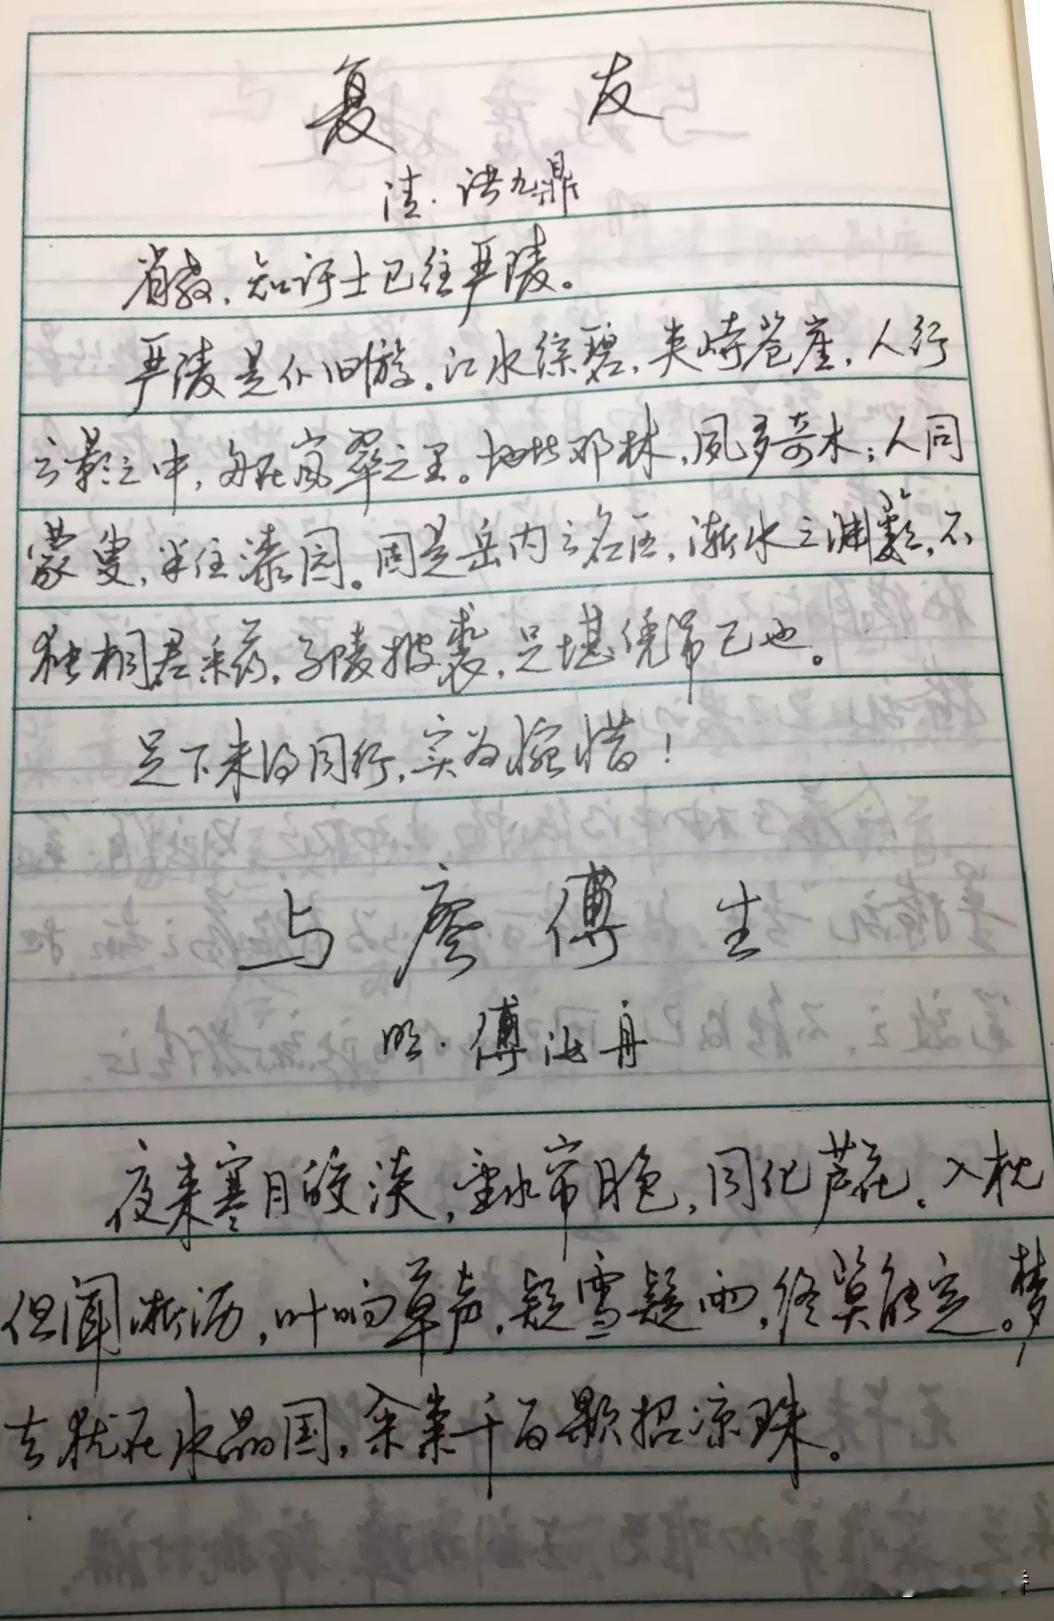 复 友
清·洪九鼎
省教，知订士已往严陵。
严陵是仆旧游。江水综碧，夹峙苍崖，人行
云影之中，舟在岚翠之里。地比邓林，夙多奇木；人同
蒙叟，半住漆园。固是岳内之名区，渐水之渊薮，不
独桐君采药，子陵披裘，足堪绕常已也。
足下未得同行，实为惋惜！
与 廖 傅 生
明·傅汝舟
夜来寒月皎淡，雪水带月色，同化芦花，入枕
但闻淅沥，叶响草声，疑雪疑雨，终莫能定。梦
去犹在水晶国，余案千百颗招凉珠。